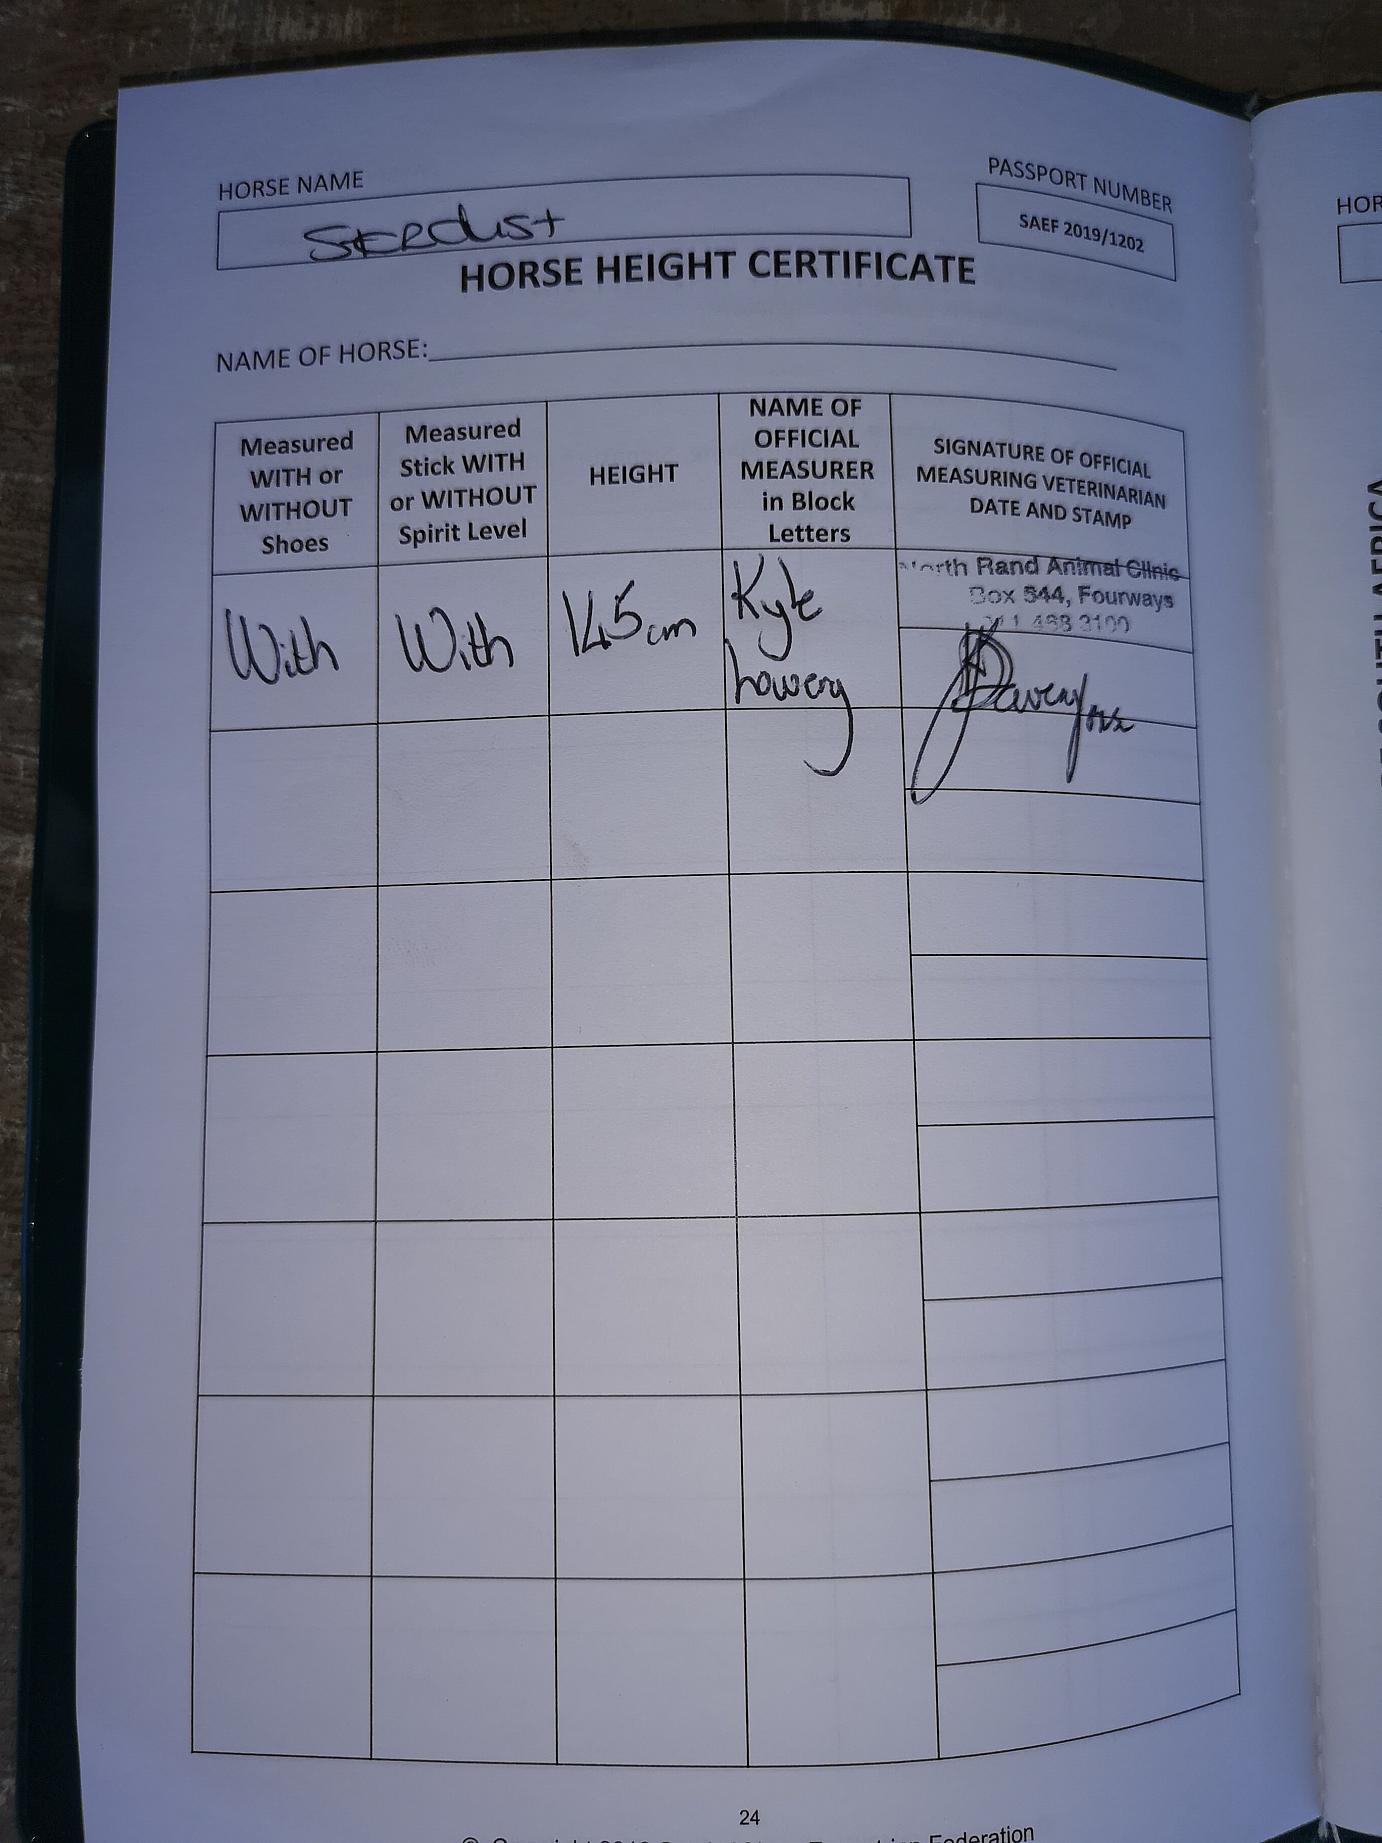 HORSE NAME
PASSPORT NUMBER
Stardust
SAEF 2019/1202
HORSE HEIGHT CERTIFICATE
NAME OF HORSE:
Measured
WITH or
WITHOUT
Shoes
Measured
Stick WITH
or WITHOUT
Spirit Level
HEIGHT
NAME OF
OFFICIAL
MEASURER
in Block
Letters
SIGNATURE OF OFFICIAL
MEASURING VETERINARIAN
DATE AND STAMP
With
With
145cm
Kyle
Lowery
North Rand Animal Clinic
Box 544, Fourways
24
Federation
HOR
SOUTH AFRICA